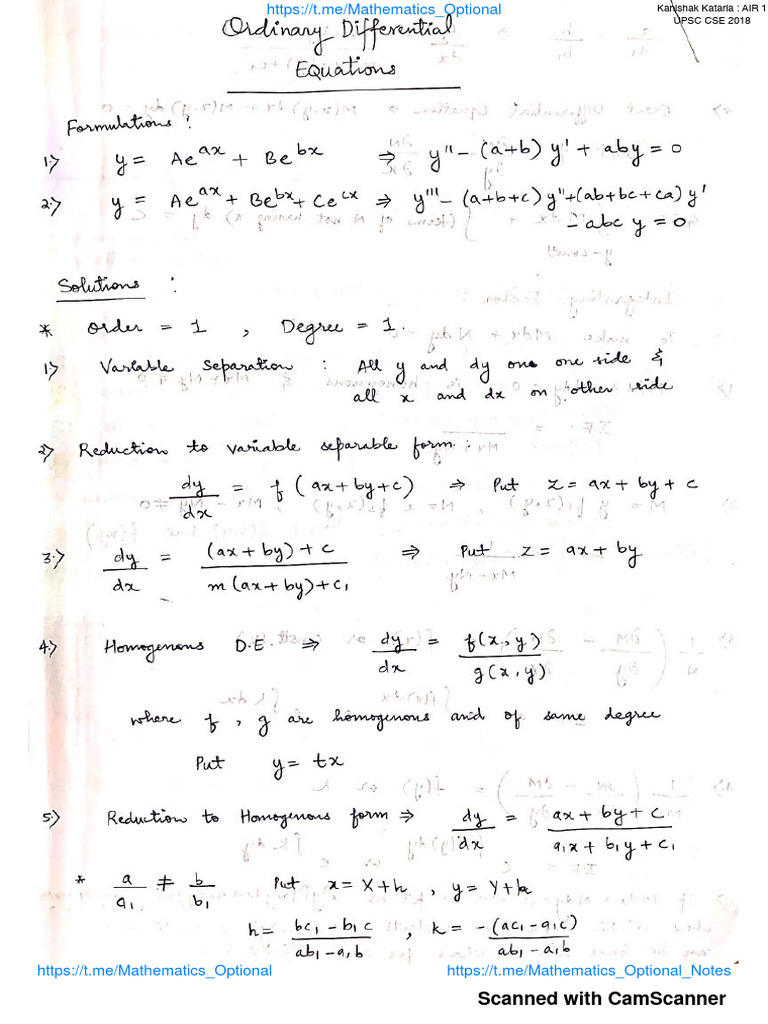 https://t.me/Mathematics_Optional
Kanishak Kataria : AIR 1
UPSC CSE 2018
Ordinary Differential
Equations
Formulations :
1.) y = Ae^{ax} + Be^{bx} ⇒ y'' - (a+b) y' + aby = 0
2.) y = Ae^{ax} + Be^{bx} + Ce^{cx} ⇒ y''' - (a+b+c) y'' + (ab+bc+ca) y'
- abc y = 0
Solutions :
* Order = 1 , Degree = 1.
1.) Variable Separation : All y and dy one one side &
all x and dx on other side
2.) Reduction to variable separable form :
dy/dx = f (ax+by+c) ⇒ Put z = ax + by + c
3.) dy/dx = ((ax+by)+c)/(m(ax+by)+c₁) ⇒ Put z = ax + by
4.) Homogenous D.E. ⇒ dy/dx = f(x,y)/g(x,y)
where f, g are homogenous and of same degree
Put y = tx
5.) Reduction to Homogenous form ⇒ dy/dx = (ax+by+c)/(a₁x+b₁y+c₁)
* a/a₁ ≠ b/b₁ Put x = X+h , y = Y+k
h = (bc₁-b₁c)/(ab₁-a₁b) , k = -(ac₁-a₁c)/(ab₁-a₁b)
https://t.me/Mathematics_Optional
https://t.me/Mathematics_Optional_Notes
Scanned with CamScanner